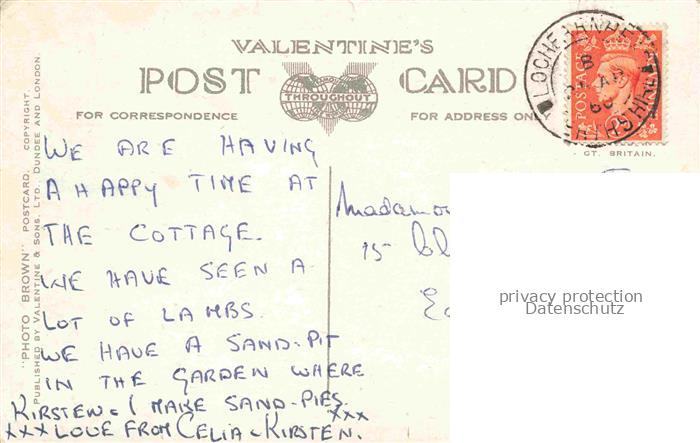 VALENTINE'S
POST CARD
THROUGHOUT
FOR CORRESPONDENCE
FOR ADDRESS ONLY
GT. BRITAIN.
LOCHEARNHEAD
PERTHSHIRE
POSTAGE
"PHOTO BROWN" POSTCARD. COPYRIGHT.
PUBLISHED BY VALENTINE & SONS, LTD., DUNDEE AND LONDON.
WE ARE HAVING
A HAPPY TIME AT
THE COTTAGE.
WE HAVE SEEN A
LOT OF LAMBS.
WE HAVE A SAND-PIT
IN THE GARDEN WHERE
KIRSTEN & I MAKE SAND-PIES.
XXX
XXX LOVE FROM CELIA & KIRSTEN.
15
privacy protection
Datenschutz